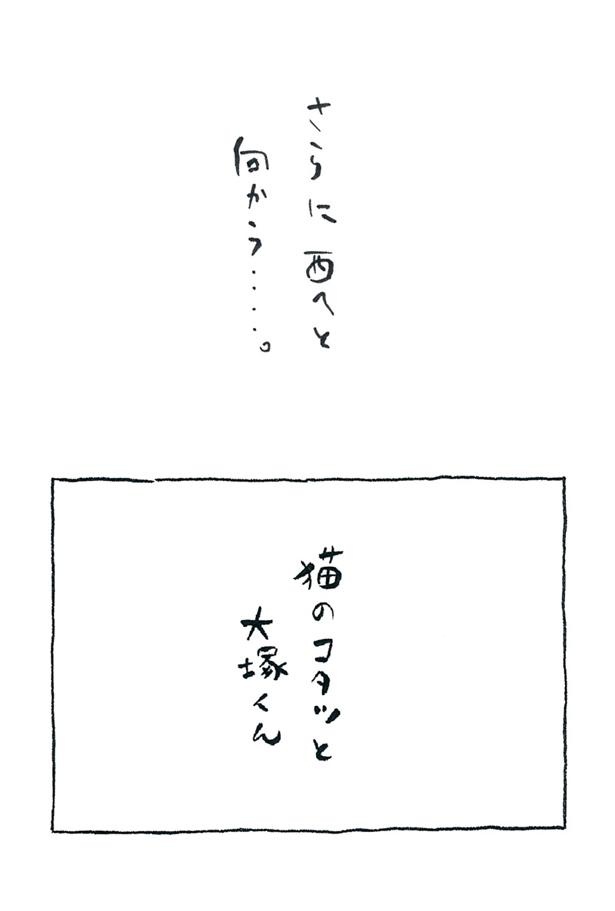 さらに西へと
向かう・・・・・。
猫のコタツと
大塚くん